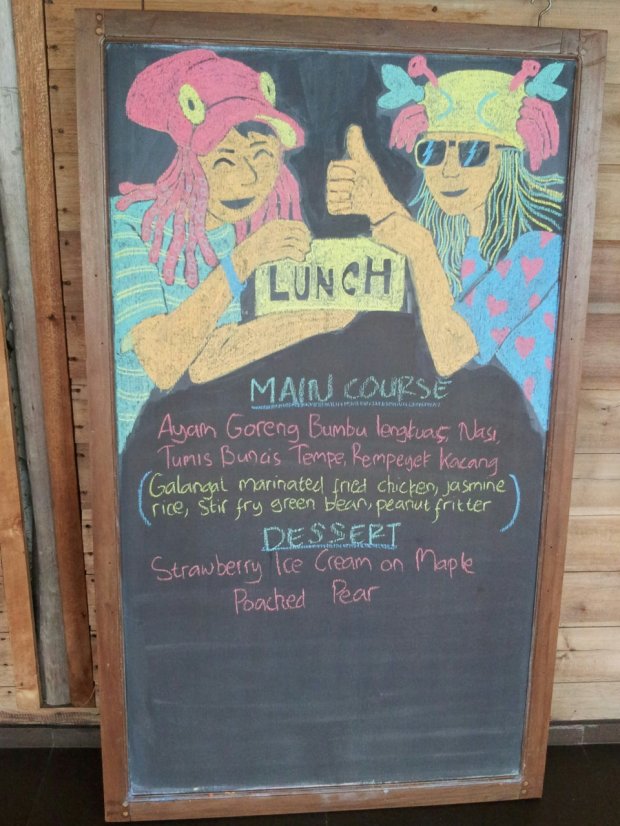 LUNCH
MAIN COURSE
Ayam Goreng Bumbu lengkuas, Nasi,
Tumis Buncis Tempe, Rempeyek Kacang
(Galangal marinated fried chicken, jasmine
rice, stir fry green bean, peanut fritter)
DESSERT
Strawberry Ice Cream on Maple
Poached Pear